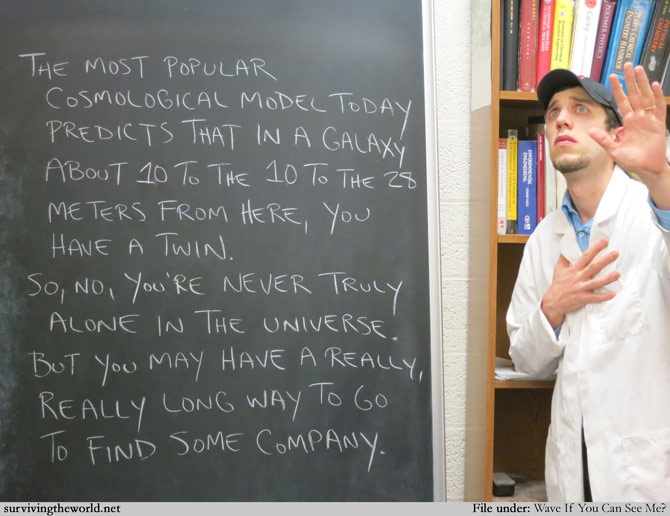 THE MOST POPULAR
COSMOLOGICAL MODEL TODAY
PREDICTS THAT IN A GALAXY
ABOUT 10 TO THE 10 TO THE 28
METERS FROM HERE, YOU
HAVE A TWIN.
SO, NO, YOU'RE NEVER TRULY
ALONE IN THE UNIVERSE.
BUT YOU MAY HAVE A REALLY,
REALLY LONG WAY TO GO
TO FIND SOME COMPANY.
POLYMER PHYSICS
Carey
PERRY'S CHEMICAL ENGINEERS' HANDBOOK
ENVIRONMENTAL ENGINEERING
survivingtheworld.net
File under: Wave If You Can See Me?